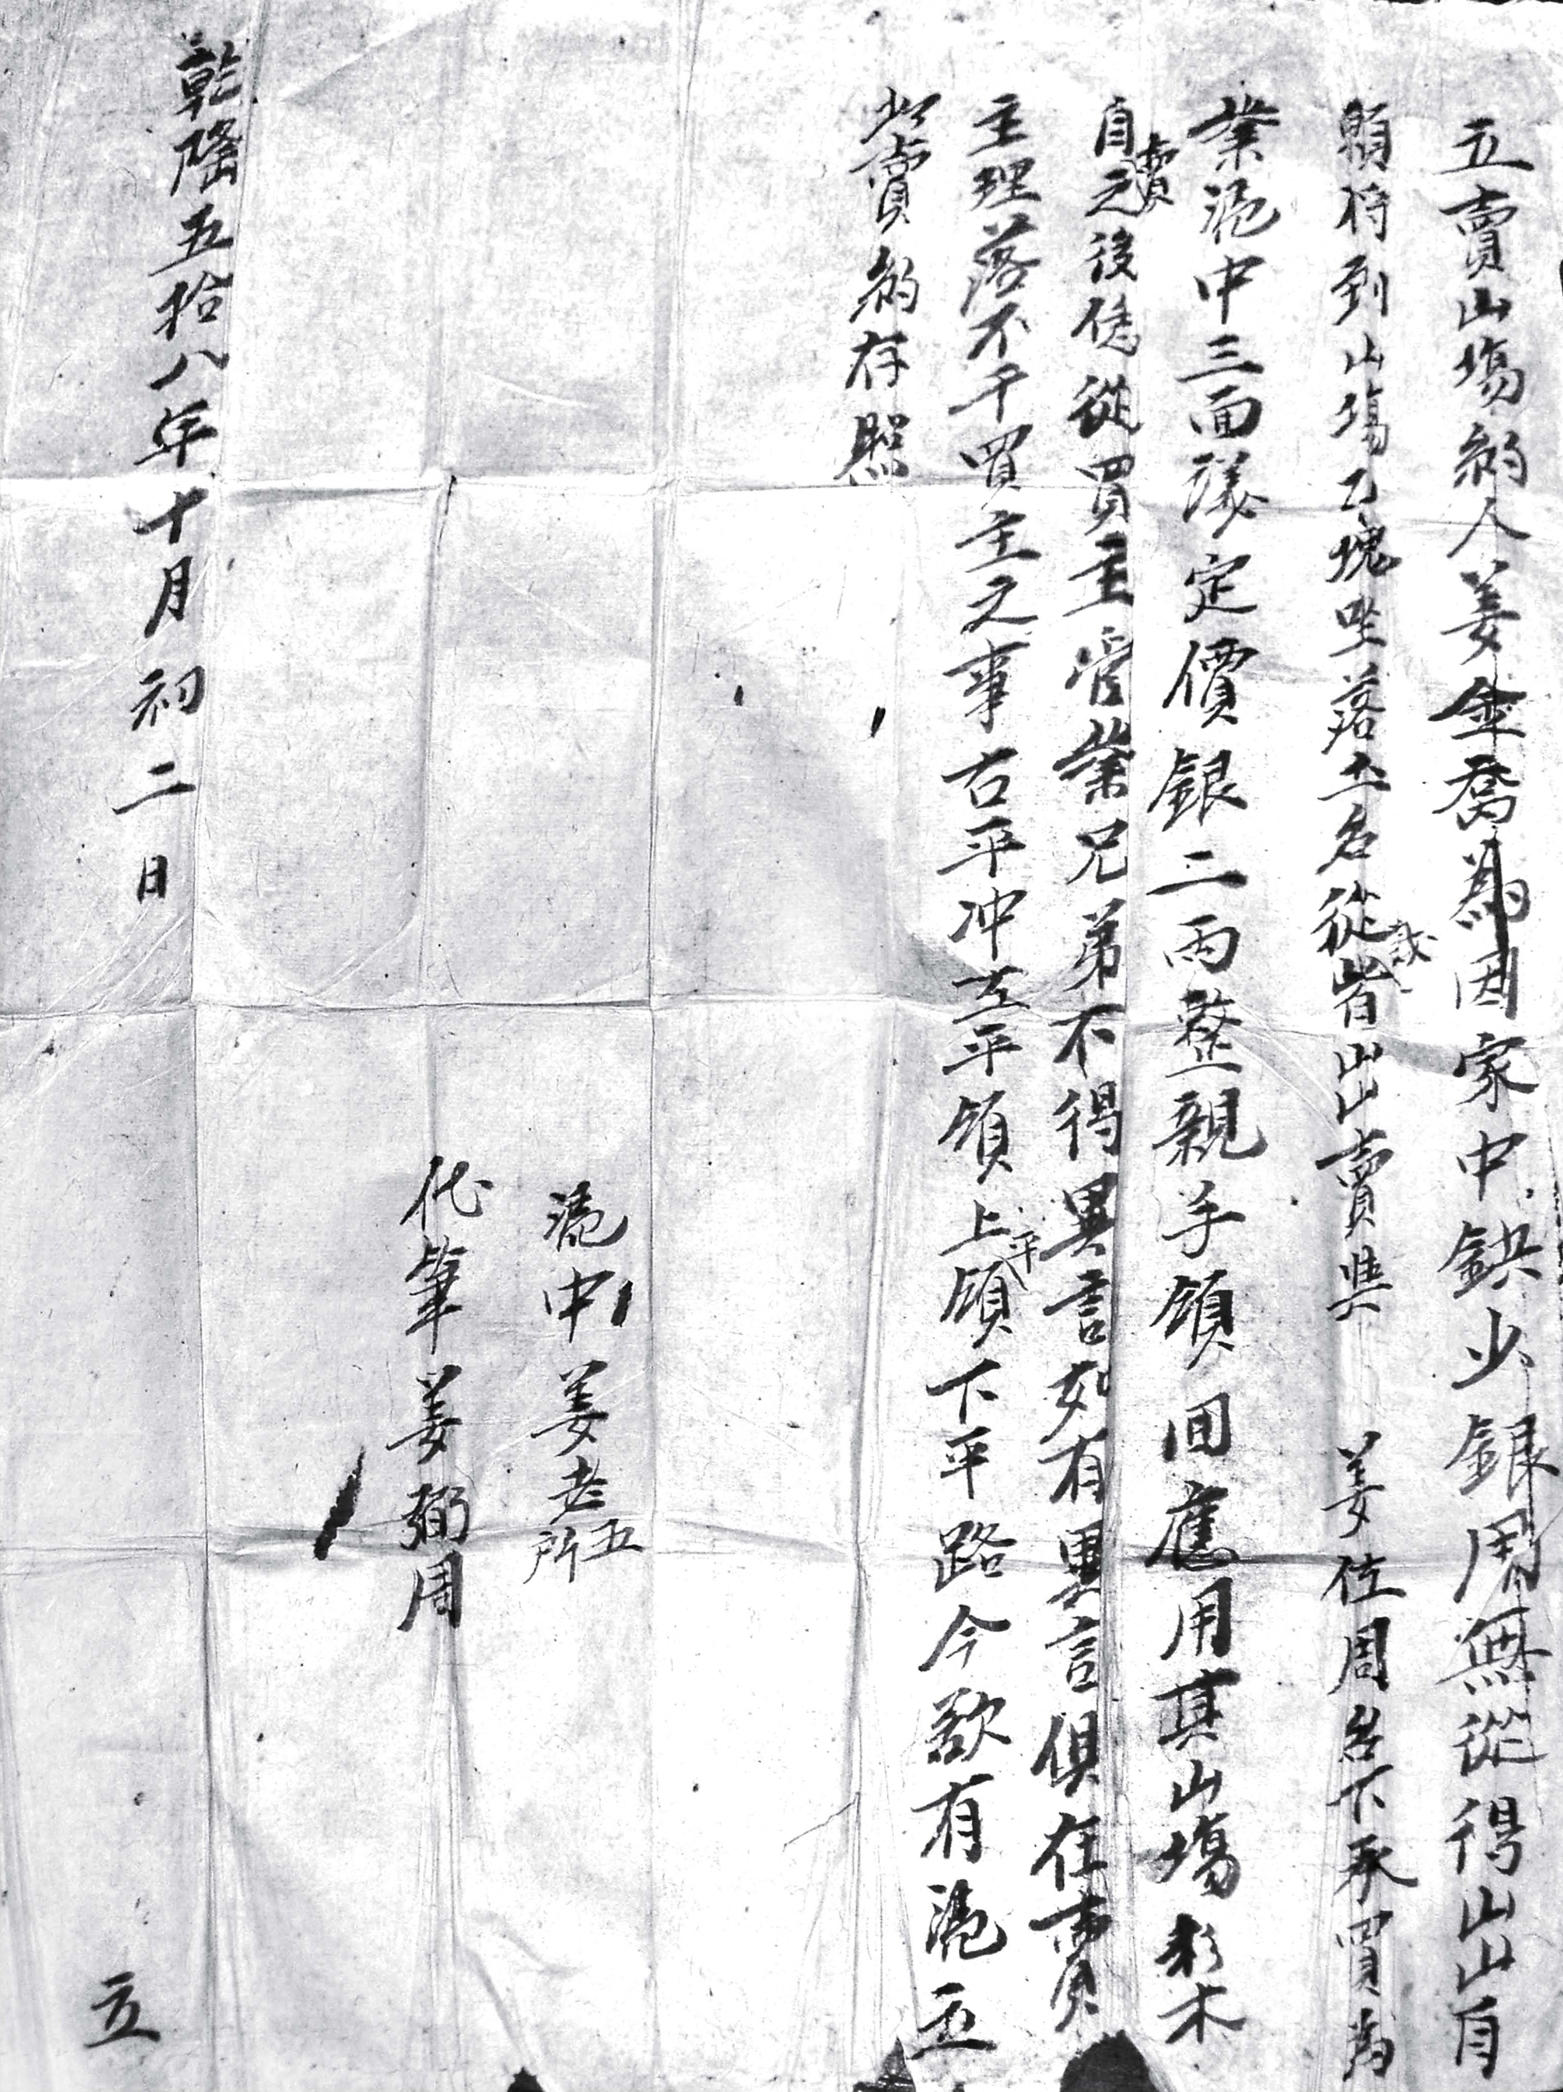 立賣山塲約人姜金喬為因家中鈌少銀用無從得出山自
願将到山塲乙塊坐落土名從故省出賣與　姜位周名下承買為
業凴中三面議定價銀二両整親手領回應用其山塲杉木
自賣之後任從買主管業兄弟不得異言如有異言俱在賣
主理落不干買主之事右平冲左平領上平領下平路今欲有凴立
此賣約存照
凴中姜老五所
代筆姜弼周
乾隆五拾八年十月初二日　立